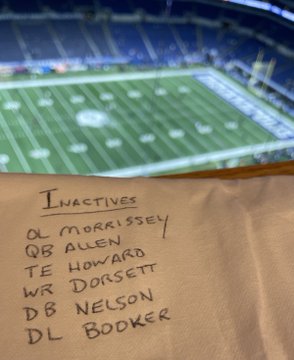 INACTIVES
OL MORRISSEY
QB ALLEN
TE HOWARD
WR DORSETT
DB NELSON
DL BOOKER